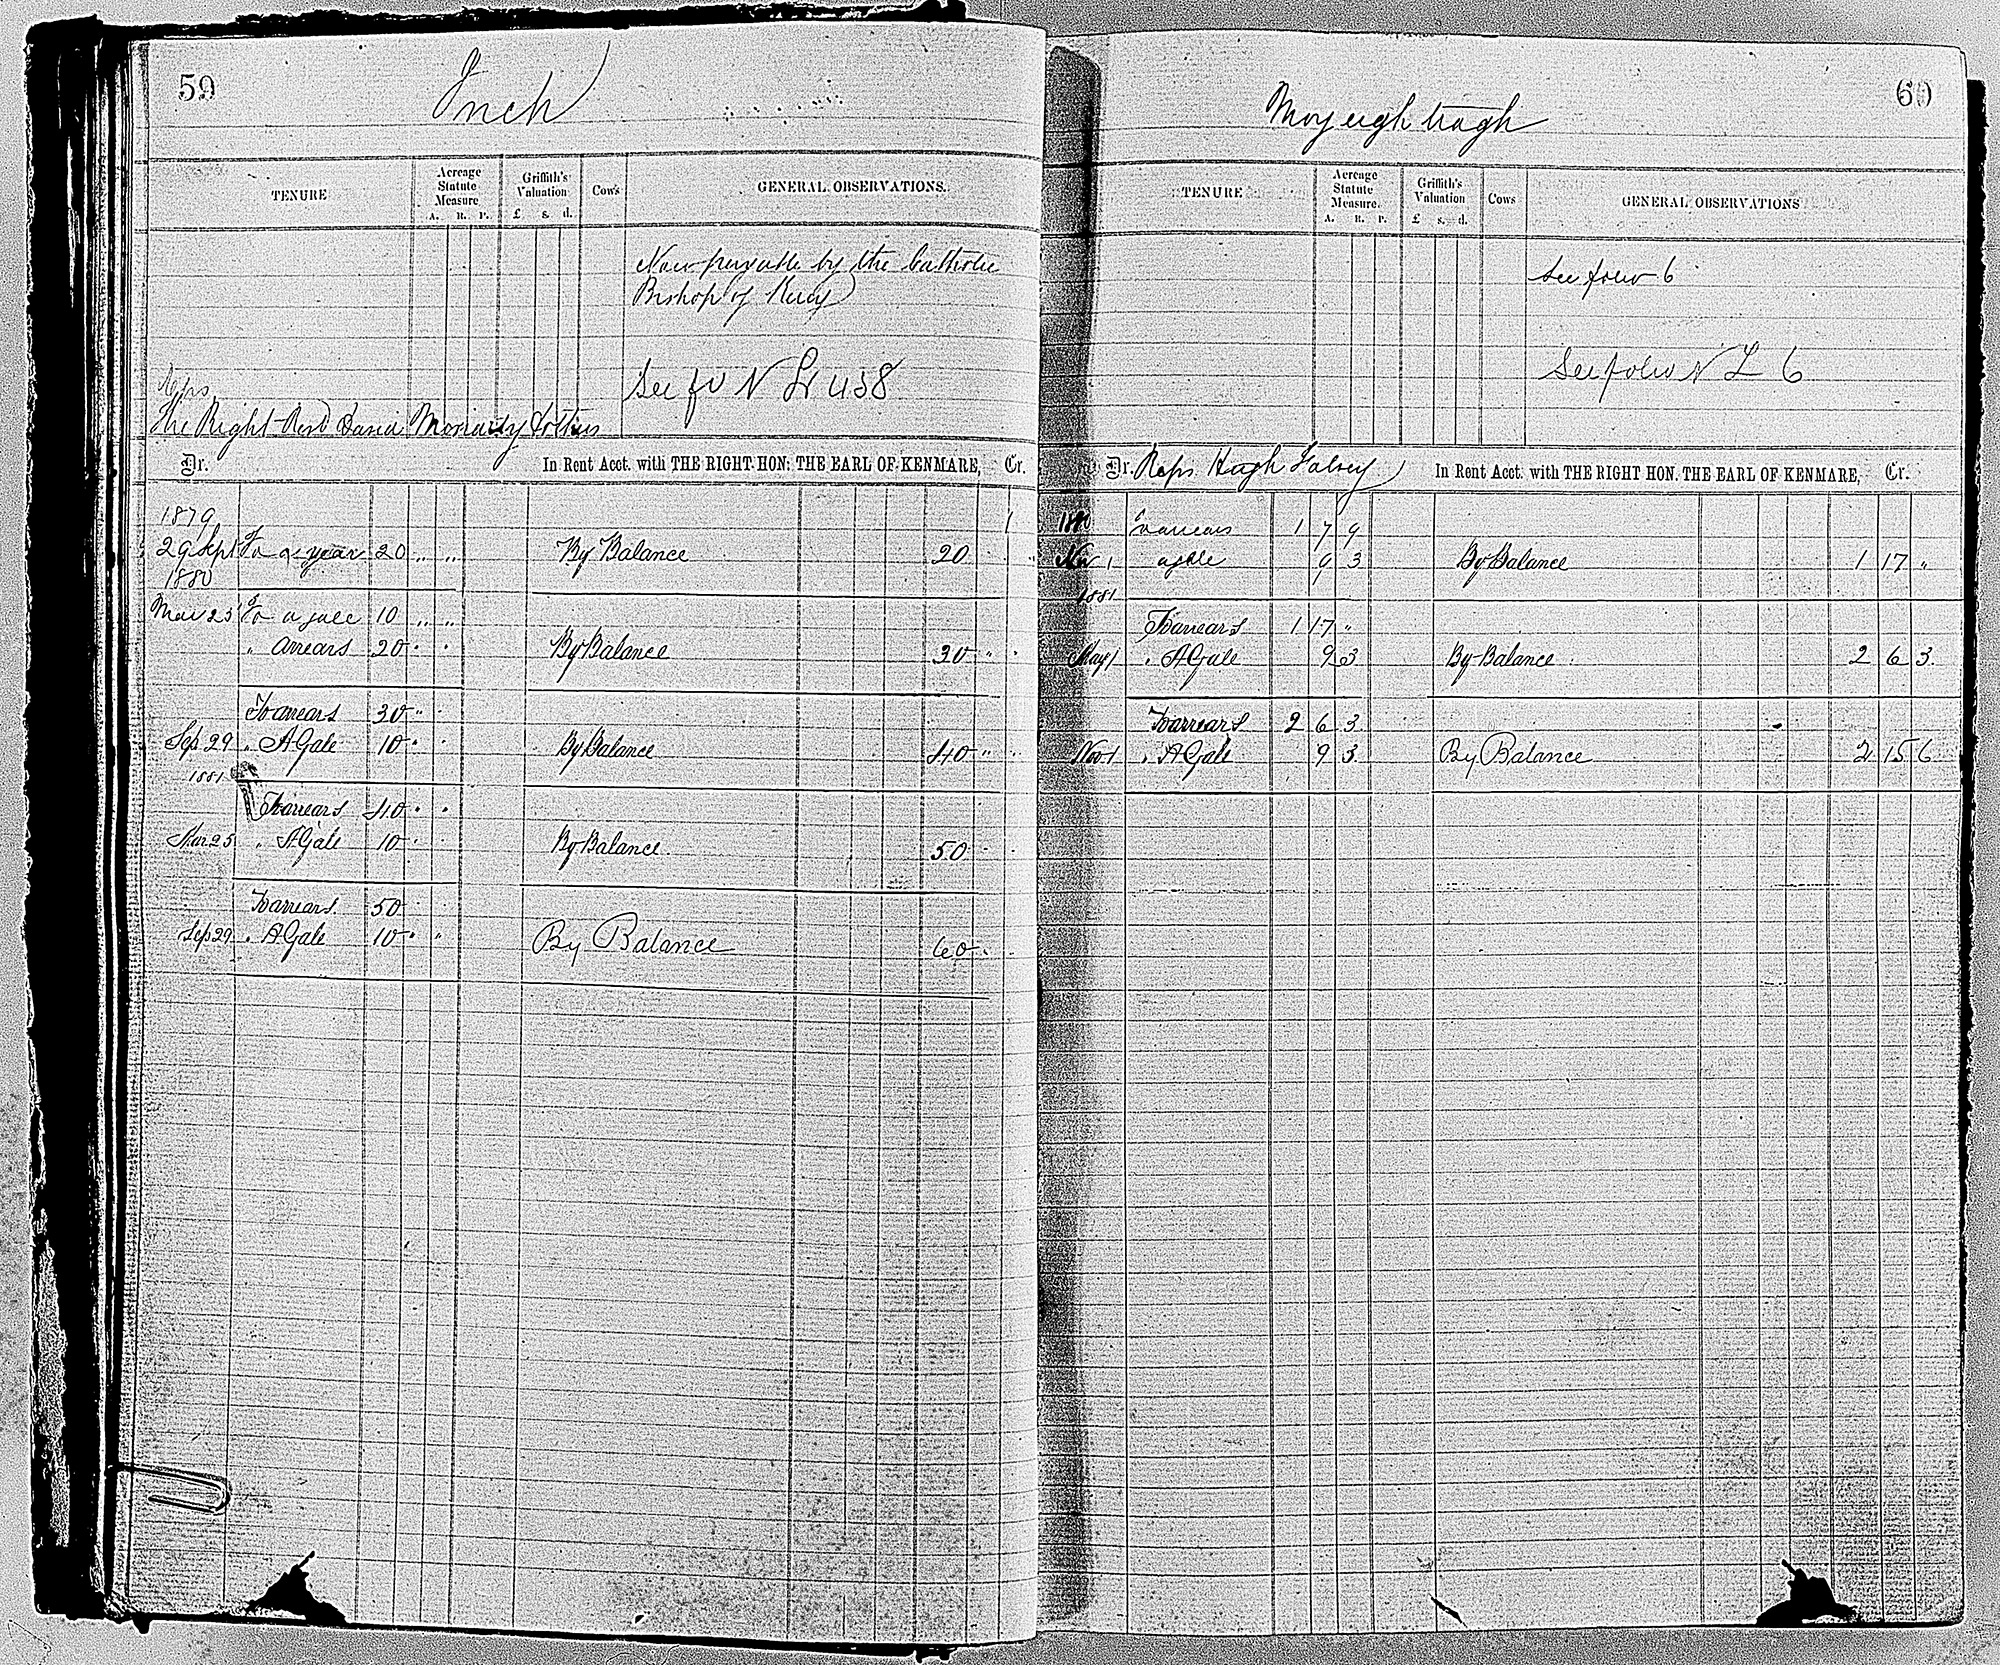 59
Inch
TENURE
Acreage Statute Measure
A. R. P.
Griffith's Valuation
£ s. d.
Cows
GENERAL OBSERVATIONS.
Now payable by the Catholic
Bishop of Kerry
See fo N L 438
Reps
The Right Revd David Moriarty
Dr.
In Rent Acct. with THE RIGHT HON: THE EARL OF KENMARE, Cr.
1879
29 Sept To a year 20 " " By Balance 20
1880
Mar 25 To a gale 10 " "
" arrears 20 " " By Balance 30 " "
To arrears 30 " "
Sep 29 " A Gale 10 " " By Balance 40 " "
1881
To arrears 40 " "
Mar 25 " A Gale 10 " " By Balance 50
To arrears 50
Sep 29 " A Gale 10 " " By Balance 60 "
60
TENURE
Acreage Statute Measure.
A. R. P.
Griffith's Valuation
£ s. d.
Cows
GENERAL OBSERVATIONS
See folio 6
See folio N L 6
Dr. Reps Hugh Falvey In Rent Acct. with THE RIGHT HON. THE EARL OF KENMARE, Cr.
1880 To arrears 1 7 9
Nov 1 a gale 9 3 By Balance 1 17 "
1881
To arrears 1 17 "
May 1 " A Gale 9 3 By Balance 2 6 3
To arrears 2 6 3
Nov 1 " A Gale 9 3 By Balance 2 15 6